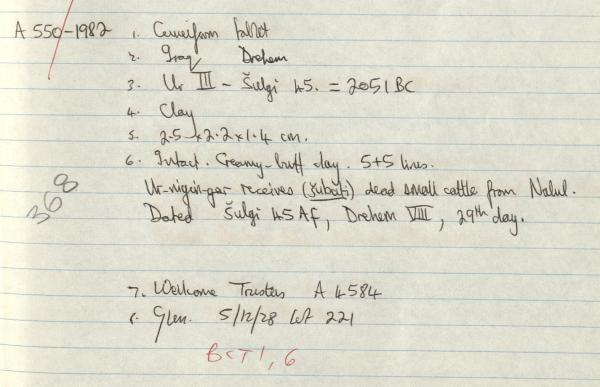 A 550-1982 1. Cuneiform tablet
2. Iraq Drehem
3. Ur III - Šulgi 45. = 2051 BC
4. Clay
5. 2.5 x 2.2 x 1.4 cm.
6. Intact. Creamy-buff clay. 5+5 lines.
Ur-nigin-gar receives (šubati) dead small cattle from Nalul.
368
Dated Šulgi 45 Af, Drehem VIII, 29th day.
7. Wellcome Trustees A 4584
8. Glen. 5/12/28 Lot 221
BCT 1, 6